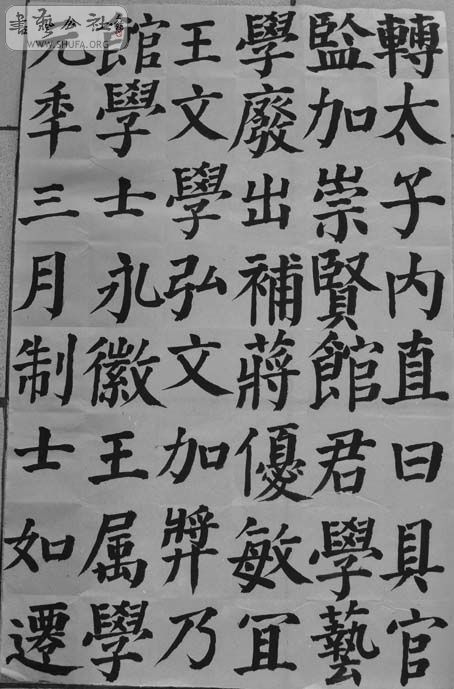 轉太子内直曰具官
監加崇賢館君學藝
學廢出補蔣優敏冝
王文學弘文加弉乃
館學士永徽王属學
元秊三月制士如遷
書藝公社
WWW.SHUFA.ORG